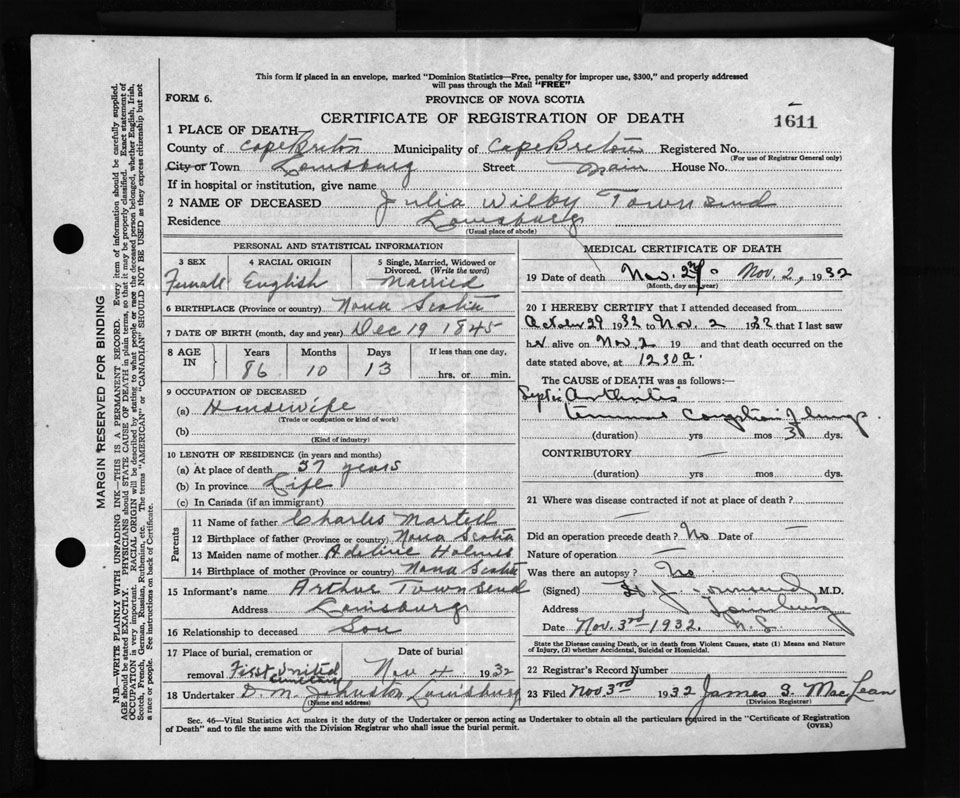 This form if placed in an envelope, marked "Dominion Statistics—Free, penalty for improper use, $300," and properly addressed
will pass through the Mail "FREE"
FORM 6.
PROVINCE OF NOVA SCOTIA
CERTIFICATE OF REGISTRATION OF DEATH
1611
1 PLACE OF DEATH
County of Cape Breton Municipality of Cape Breton Registered No.
(For use of Registrar General only)
City or Town Louisburg Street Main House No.
If in hospital or institution, give name
2 NAME OF DECEASED Julia Wilby Townsend
Residence Louisburg
(Usual place of abode)
PERSONAL AND STATISTICAL INFORMATION
3 SEX 4 RACIAL ORIGIN 5 Single, Married, Widowed or Divorced. (Write the word)
Female English Married
6 BIRTHPLACE (Province or country) Nova Scotia
7 DATE OF BIRTH (month, day and year) Dec 19 1845
8 AGE IN Years Months Days If less than one day,
86 10 13 hrs. or min.
9 OCCUPATION OF DECEASED
(a) Housewife
(Trade or occupation or kind of work)
(b)
(Kind of industry)
10 LENGTH OF RESIDENCE (in years and months)
(a) At place of death 37 years
(b) In province Life
(c) In Canada (if an immigrant)
Parents
11 Name of father Charles Martell
12 Birthplace of father (Province or country) Nova Scotia
13 Maiden name of mother Adeline Holmes
14 Birthplace of mother (Province or country) Nova Scotia
15 Informant's name Arthur Townsend
Address Louisburg
16 Relationship to deceased Son
17 Place of burial, cremation or removal Date of burial
First United Cemetery Nov 4 1932
18 Undertaker D. M. Johnston Louisburg
(Name and address)
MEDICAL CERTIFICATE OF DEATH
19 Date of death Nov. 2nd Nov. 2, 1932
(Month, day and year)
20 I HEREBY CERTIFY that I attended deceased from
October 29 1932 to Nov. 2 1932 that I last saw
her alive on Nov. 2 19 and that death occurred on the
date stated above, at 12 30 a m.
The CAUSE OF DEATH was as follows:
Septic Arthritis
Lungs.
(duration) yrs mos 3 dys.
CONTRIBUTORY —
(duration) yrs — mos dys.
21 Where was disease contracted if not at place of death? —
Did an operation precede death? No Date of —
Nature of operation —
Was there an autopsy? No
(Signed) M.D.
Address Louisburg
Date Nov. 3rd, 1932. N.S.
State the Disease causing Death, or in death from Violent Causes, state (1) Means and Nature
of Injury, (2) whether Accidental, Suicidal or Homicidal.
22 Registrar's Record Number
23 Filed Nov 3rd 1932 James S. MacLean
(Division Registrar)
Sec. 46—Vital Statistics Act makes it the duty of the Undertaker or person acting as Undertaker to obtain all the particulars required in the "Certificate of Registration
of Death" and to file the same with the Division Registrar who shall issue the burial permit.
(OVER)
MARGIN RESERVED FOR BINDING
N.B.—WRITE PLAINLY WITH UNFADING INK—THIS IS A PERMANENT RECORD. Every item of information should be carefully supplied.
AGE should be stated EXACTLY. PHYSICIANS should STATE CAUSE OF DEATH in plain terms, so that it may be properly classified. Exact statement of
OCCUPATION is very important. RACIAL ORIGIN will be described by stating to what people or race the deceased person belonged, whether English, Irish,
Scotch, French, German, Russian, Ruthenian, etc. The terms "AMERICAN" or "CANADIAN" SHOULD NOT BE USED as they express citizenship but not
a race or people. See instructions on back of Certificate.